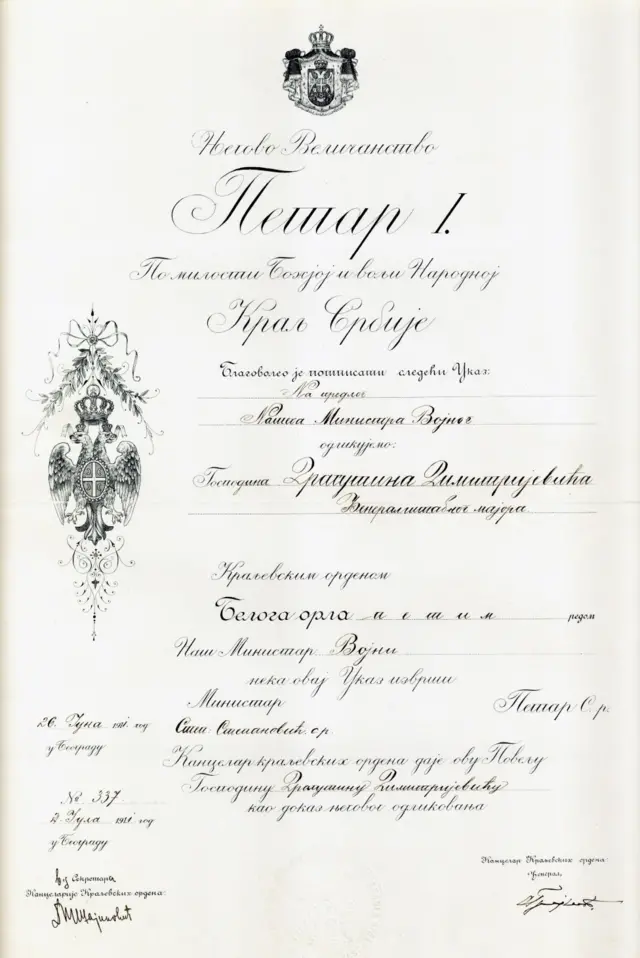 Његово Величанство
Петар I.
По милости Божјој и вољи Народној
Краљ Србије
Благоволео је потписати следећи Указ:
На предлог
Нашега Министра Војног
одликујемо:
Господина Драгутина Димитријевића
Ђенералштабног мајора
Краљевским орденом
Белога орла петим редом
Наш Министар Војни
нека овај Указ изврши
Министар
Петар С. р.
26. Јуна 1911. год
у Београду
Степ. Степановић с.р.
Канцелар краљевских ордена даје ову Повељу
Господину Драгутину Димитријевићу
као доказ његовог одликовања
№ 337
2 Јула 1911 год
у Београду
Канцелар Краљевских ордена:
Ђенерал,
в.д. Секретара
Канцеларије Краљевских ордена: